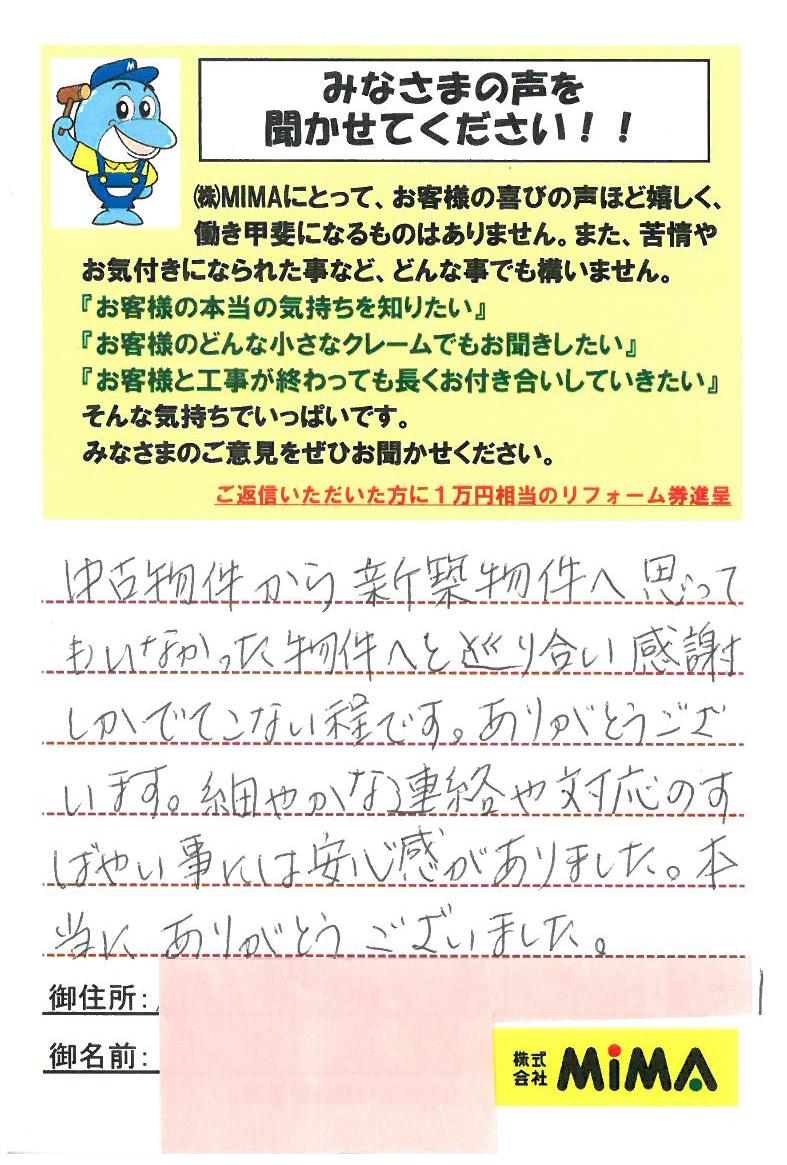 みなさまの声を
聞かせてください！！
㈱MIMAにとって、お客様の喜びの声ほど嬉しく、
働き甲斐になるものはありません。また、苦情や
お気付きになられた事など、どんな事でも構いません。
『お客様の本当の気持ちを知りたい』
『お客様のどんな小さなクレームでもお聞きしたい』
『お客様と工事が終わっても長くお付き合いしていきたい』
そんな気持ちでいっぱいです。
みなさまのご意見をぜひお聞かせください。
ご返信いただいた方に１万円相当のリフォーム券進呈
中古物件から新築物件へ思って
もいなかった物件へと巡り合い感謝
しかでてこない程です。ありがとうござ
います。細やかな連絡や対応のす
ばやい事には安心感がありました。本
当にありがとうございました。
御住所：
御名前：
株式会社 MiMA